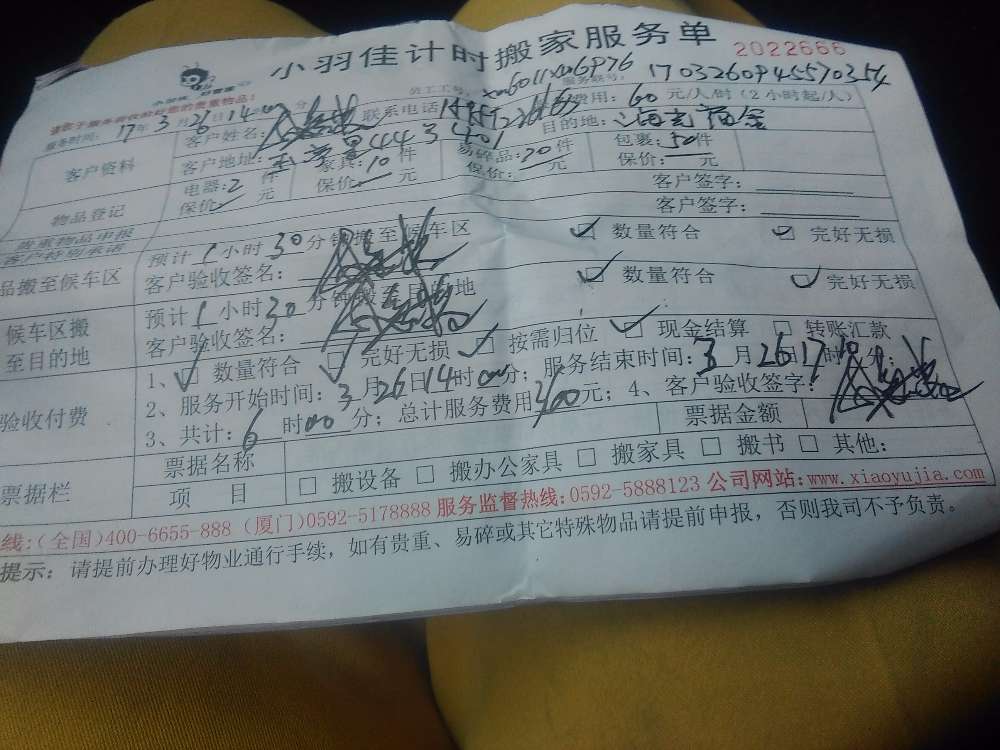 小羽佳计时搬家服务单
2022666
服务时间：17年3月26日14时00分
服务联号：1703260945570354
费用：60元/人/时（2小时起/人）
客户资料
客户姓名：
联系电话
目的地：
客户地址：
物品登记
电器：2件
家具：10件
易碎品：20件
包裹：50件
保价 元
保价： 元
保价： 元
保价： 元
贵重物品申报
客户签字：
客户特别承诺
客户签字：
品搬至候车区
预计1小时30分钟搬至候车区
数量符合
完好无损
客户验收签名：
候车区搬
至目的地
预计1小时30分钟搬至目的地
数量符合
完好无损
客户验收签名：
验收付费
1、 数量符合 完好无损 按需归位 现金结算 转账汇款
2、服务开始时间：3月26日14时00分；服务结束时间：3月26日17时
3、共计：6时00分；总计服务费用360元；4、客户验收签字：
票据栏
票据名称
票据金额
项 目
搬设备 搬办公家具 搬家具 搬书 其他：
线：(全国)400-6655-888 (厦门)0592-5178888 服务监督热线：0592-5888123 公司网站：www.xiaoyujia.com
提示：请提前办理好物业通行手续，如有贵重、易碎或其它特殊物品请提前申报，否则我司不予负责。